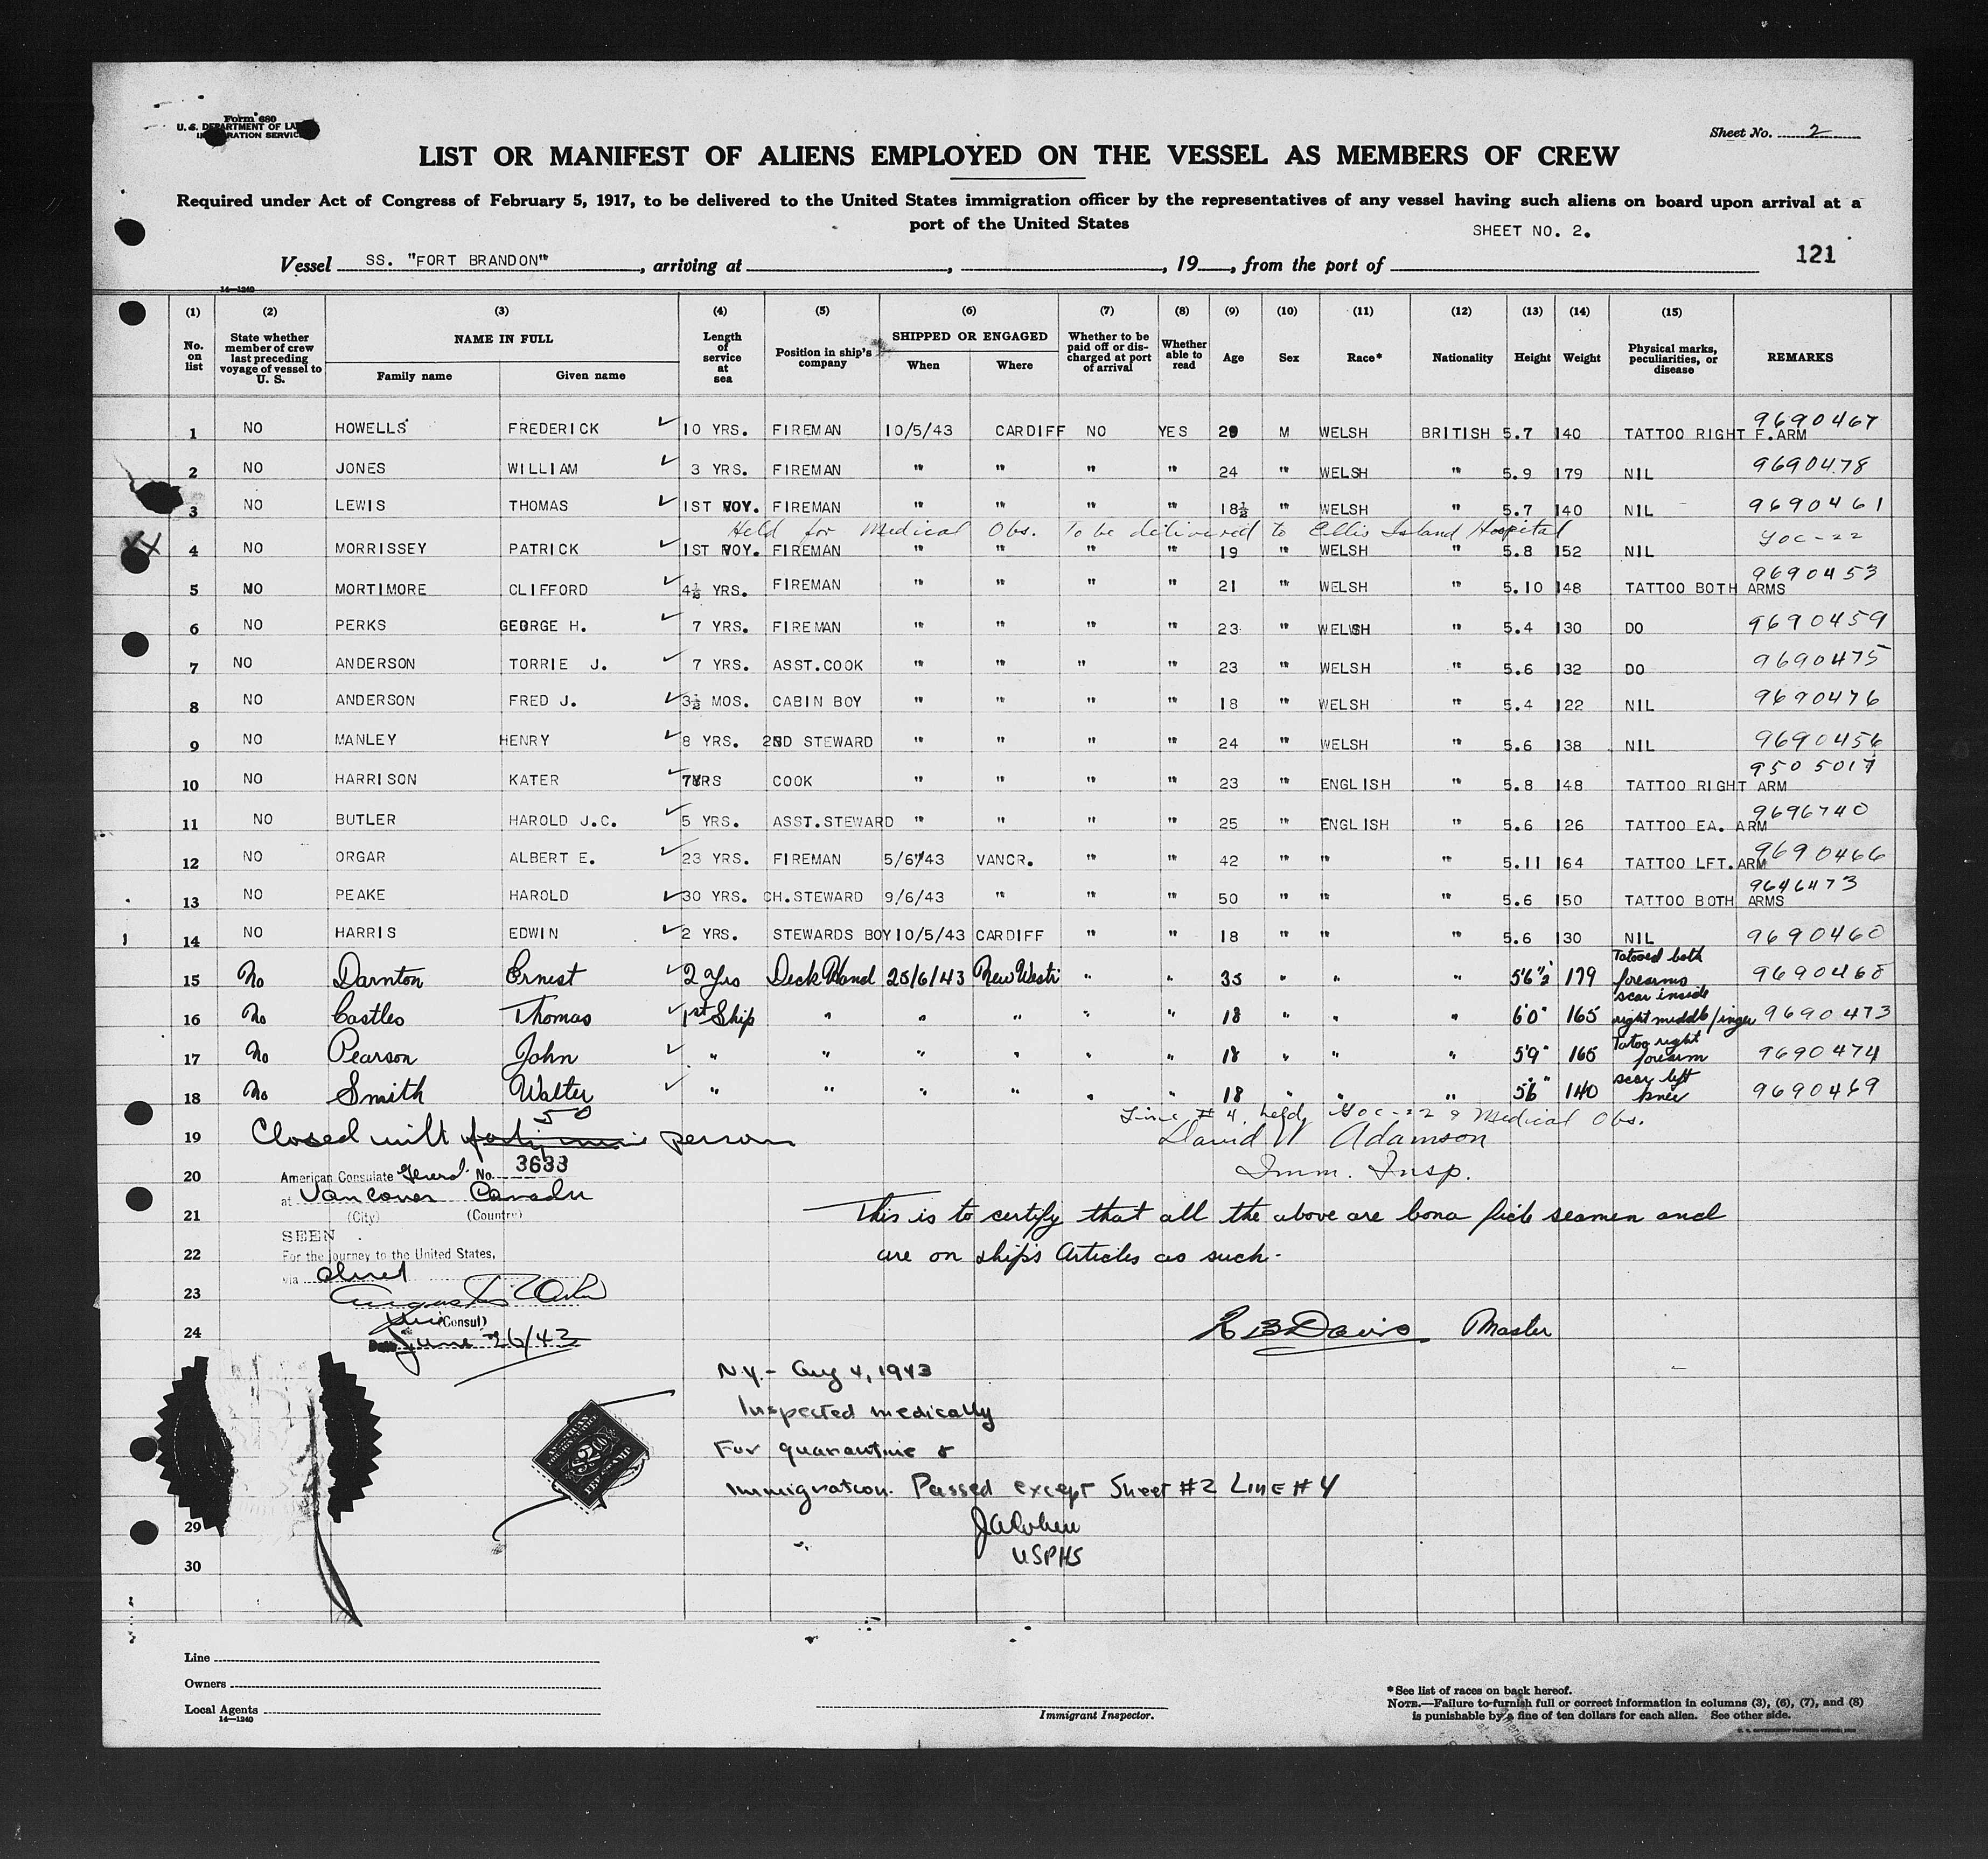 Form 680
U. S. DEPARTMENT OF LA
IMMIGRATION SERVIC
Sheet No. 2
LIST OR MANIFEST OF ALIENS EMPLOYED ON THE VESSEL AS MEMBERS OF CREW
Required under Act of Congress of February 5, 1917, to be delivered to the United States immigration officer by the representatives of any vessel having such aliens on board upon arrival at a
port of the United States
SHEET NO. 2.
Vessel SS. "FORT BRANDON", arriving at , , 19 , from the port of
121
14—1240
(1) (2) (3) (4) (5) (6) (7) (8) (9) (10) (11) (12) (13) (14) (15)
No. on list State whether member of crew last preceding voyage of vessel to U. S. NAME IN FULL Family name Given name Length of service at sea Position in ship's company SHIPPED OR ENGAGED When Where Whether to be paid off or discharged at port of arrival Whether able to read Age Sex Race* Nationality Height Weight Physical marks, peculiarities, or disease REMARKS
1 NO HOWELLS FREDERICK ✓ 10 YRS. FIREMAN 10/5/43 CARDIFF NO YES 29 M WELSH BRITISH 5.7 140 TATTOO RIGHT F.ARM 9690467
2 NO JONES WILLIAM ✓ 3 YRS. FIREMAN " " " " 24 " WELSH " 5.9 179 NIL 9690478
3 NO LEWIS THOMAS ✓ 1ST VOY. FIREMAN " " " " 18½ " WELSH " 5.7 140 NIL 9690461
Held for Medical Obs. To be delivered to Ellis Island Hospital
4 NO MORRISSEY PATRICK ✓ 1ST VOY. FIREMAN " " " " 19 " WELSH " 5.8 152 NIL GOC-22
5 NO MORTIMORE CLIFFORD ✓ 4½ YRS. FIREMAN " " " " 21 " WELSH " 5.10 148 TATTOO BOTH ARMS 9690453
6 NO PERKS GEORGE H. ✓ 7 YRS. FIREMAN " " " " 23 " WELSH " 5.4 130 DO 9690459
7 NO ANDERSON TORRIE J. ✓ 7 YRS. ASST.COOK " " " " 23 " WELSH " 5.6 132 DO 9690475
8 NO ANDERSON FRED J. ✓ 3½ MOS. CABIN BOY " " " " 18 " WELSH " 5.4 122 NIL 9690476
9 NO MANLEY HENRY ✓ 8 YRS. 2ND STEWARD " " " " 24 " WELSH " 5.6 138 NIL 9690456
10 NO HARRISON KATER ✓ 7YRS COOK " " " " 23 " ENGLISH " 5.8 148 TATTOO RIGHT ARM 9505017
11 NO BUTLER HAROLD J.C. ✓ 5 YRS. ASST.STEWARD " " " " 25 " ENGLISH " 5.6 126 TATTOO EA. ARM 9696740
12 NO ORGAR ALBERT E. ✓ 23 YRS. FIREMAN 5/6/43 VANCR. " " 42 " " " 5.11 164 TATTOO LFT.ARM 9690466
13 NO PEAKE HAROLD ✓ 30 YRS. CH.STEWARD 9/6/43 " " " 50 " " " 5.6 150 TATTOO BOTH ARMS 9646473
14 NO HARRIS EDWIN ✓ 2 YRS. STEWARDS BOY 10/5/43 CARDIFF " " 18 " " " 5.6 130 NIL 9690460
15 No Darnton Ernest ✓ 2 Yrs Deck Hand 25/6/43 New Westr " " 35 " " " 5'6½" 179 Tatooed both forearms 9690468
16 No Castles Thomas ✓ 1st Ship " " " " " 18 " " " 6'0" 165 scar inside right middle finger 9690473
17 No Pearson John ✓ " " " " " " 18 " " " 5'9" 165 Tatoo right forearm 9690474
18 No Smith Walter ✓ " " " " " " 18 " " " 5'6" 140 scar left knee 9690469
Line # 4, held, GOC-22 & Medical Obs.
50
19 Closed with forty nine person
David W Adamson
Imm. Insp.
20 American Consulate General No. 3633
at Vancouver Canada
(City) (Country)
21 This is to certify that all the above are bona fide seamen and
SEEN
22 For the journey to the United States,
are on ship's Articles as such.
via direct
23
Vice (Consul)
24 Date June 26/43
R B Davis Master
N.Y.- Aug 4, 1943
Inspected medically
For quarantine &
immigration. Passed except Sheet #2 Line #4
29 JA Cohen
USPHS
30
AMERICAN FOREIGN SERVICE
$2 00
FEE STAMP
Line
Owners
Local Agents
14—1240
Immigrant Inspector.
*See list of races on back hereof.
NOTE.—Failure to furnish full or correct information in columns (3), (6), (7), and (8)
is punishable by a fine of ten dollars for each alien. See other side.